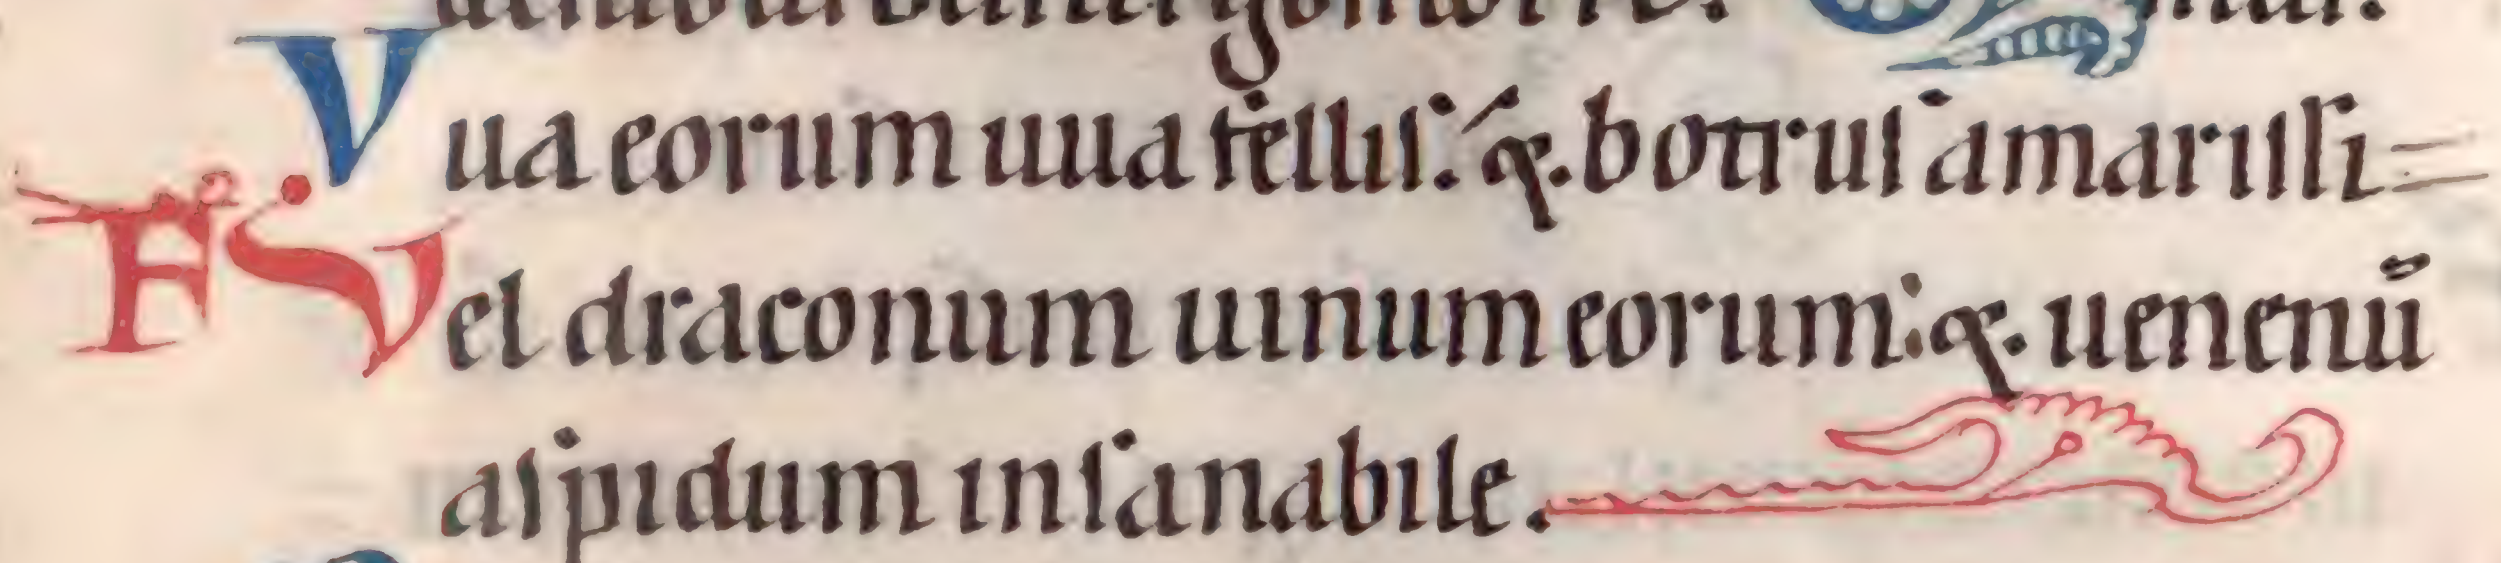 Vua eorum uua fellis: & botrus amarissi=
Fel draconum uinum eorum: & uenenū
aspidum insanabile.